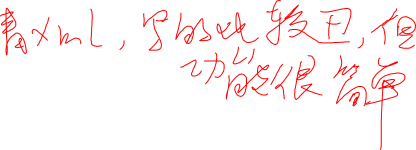 看xml，写的比较丑，但
功能很简单